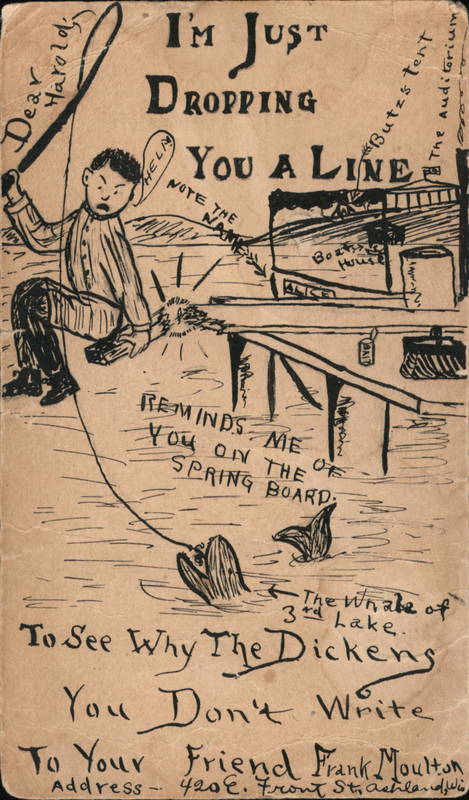 Dear
Harold,
I'm Just
Dropping
You a Line
Butzs tent
The Auditorium
NOTE THE
NAME
House
ALICE
REMINDS ME OF
YOU ON THE
SPRING BOARD.
The Whale of
3rd Lake.
To See Why The Dickens
You Don't Write
To Your Friend Frank Moulton
Address - 420 E. Front St, Ashland, Wis